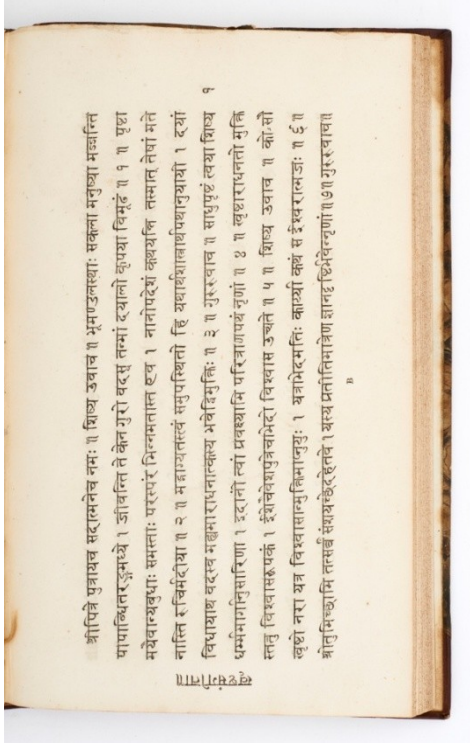 ख्रृष्टसंगीता॥
१
श्रीपित्रे पुत्रायच सदात्मनेच नमः ॥ शिष्य उवाच ॥ भूमण्डलस्थाः सकला मनुष्या मज्जन्ति
पापाब्धितरङ्गमध्ये । जीवन्ति ते केन गुरो वदस्व तन्मां दयालो कृपया विमूढं ॥ १ ॥ पृष्टा
मयेवान्यबुधाः समन्ताः परस्परं भिन्नमतास्त एव । नानोपदेशं कथयन्ति तस्मात् तेषां मते
नास्ति रुचिर्मदीया ॥ २ ॥ मद्भाग्यतस्त्वं समुपस्थितो हि यथार्थशास्त्रार्थपथानुयायी । दयां
विधायाथ वदस्व मह्यमाराधनात्कस्य भवेद्विमुक्तिः ॥ ३ ॥ गुरुरुवाच ॥ साधुपृष्टं त्वया शिष्य
धर्म्ममार्गानुसारिणा । इदानीं त्वां प्रवक्ष्यामि परित्राणपथं नृणां ॥ ४ ॥ ख्रृष्टाराधनतो मुक्ति
स्तत्तु विश्वासरूपकं । ईशेचेवेशपुत्रेचाभेदो विश्वास उच्यते ॥ ५ ॥ शिष्य उवाच ॥ कोऽसौ
ख्रृष्टो नरा यत्र विश्वासान्मुक्तिमाप्नुयुः । यत्राभेदमतिः कार्य्या कथं स ईश्वरात्मजः ॥ ६ ॥
श्रोतुमिच्छामि तत्सर्व्वं संशयच्छेदहेतवे । यस्य प्रतीतिमात्रेण ज्ञानदृष्टिर्भवेन्नृणां ॥ ७ ॥ गुरुरुवाच ॥
B